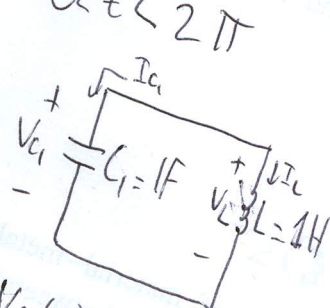 0 < t < 2π
I_C1
+
V_C1
C_1 = 1F
-
+
V_L
↓I_L
L = 1H
-